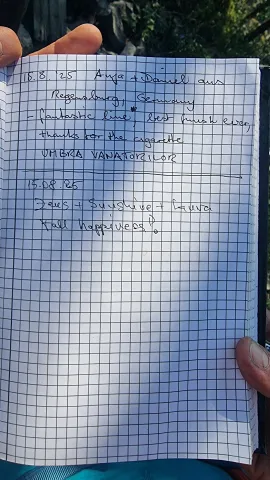 15.8.25 Anja + Daniel aus
Regensburg, Germany
- fantastic line* best finish ever,
thanks for the cigarette
UMBRA VANATORILOR
15.08.25
Zeus + Sunshine + Laura
all happiness!